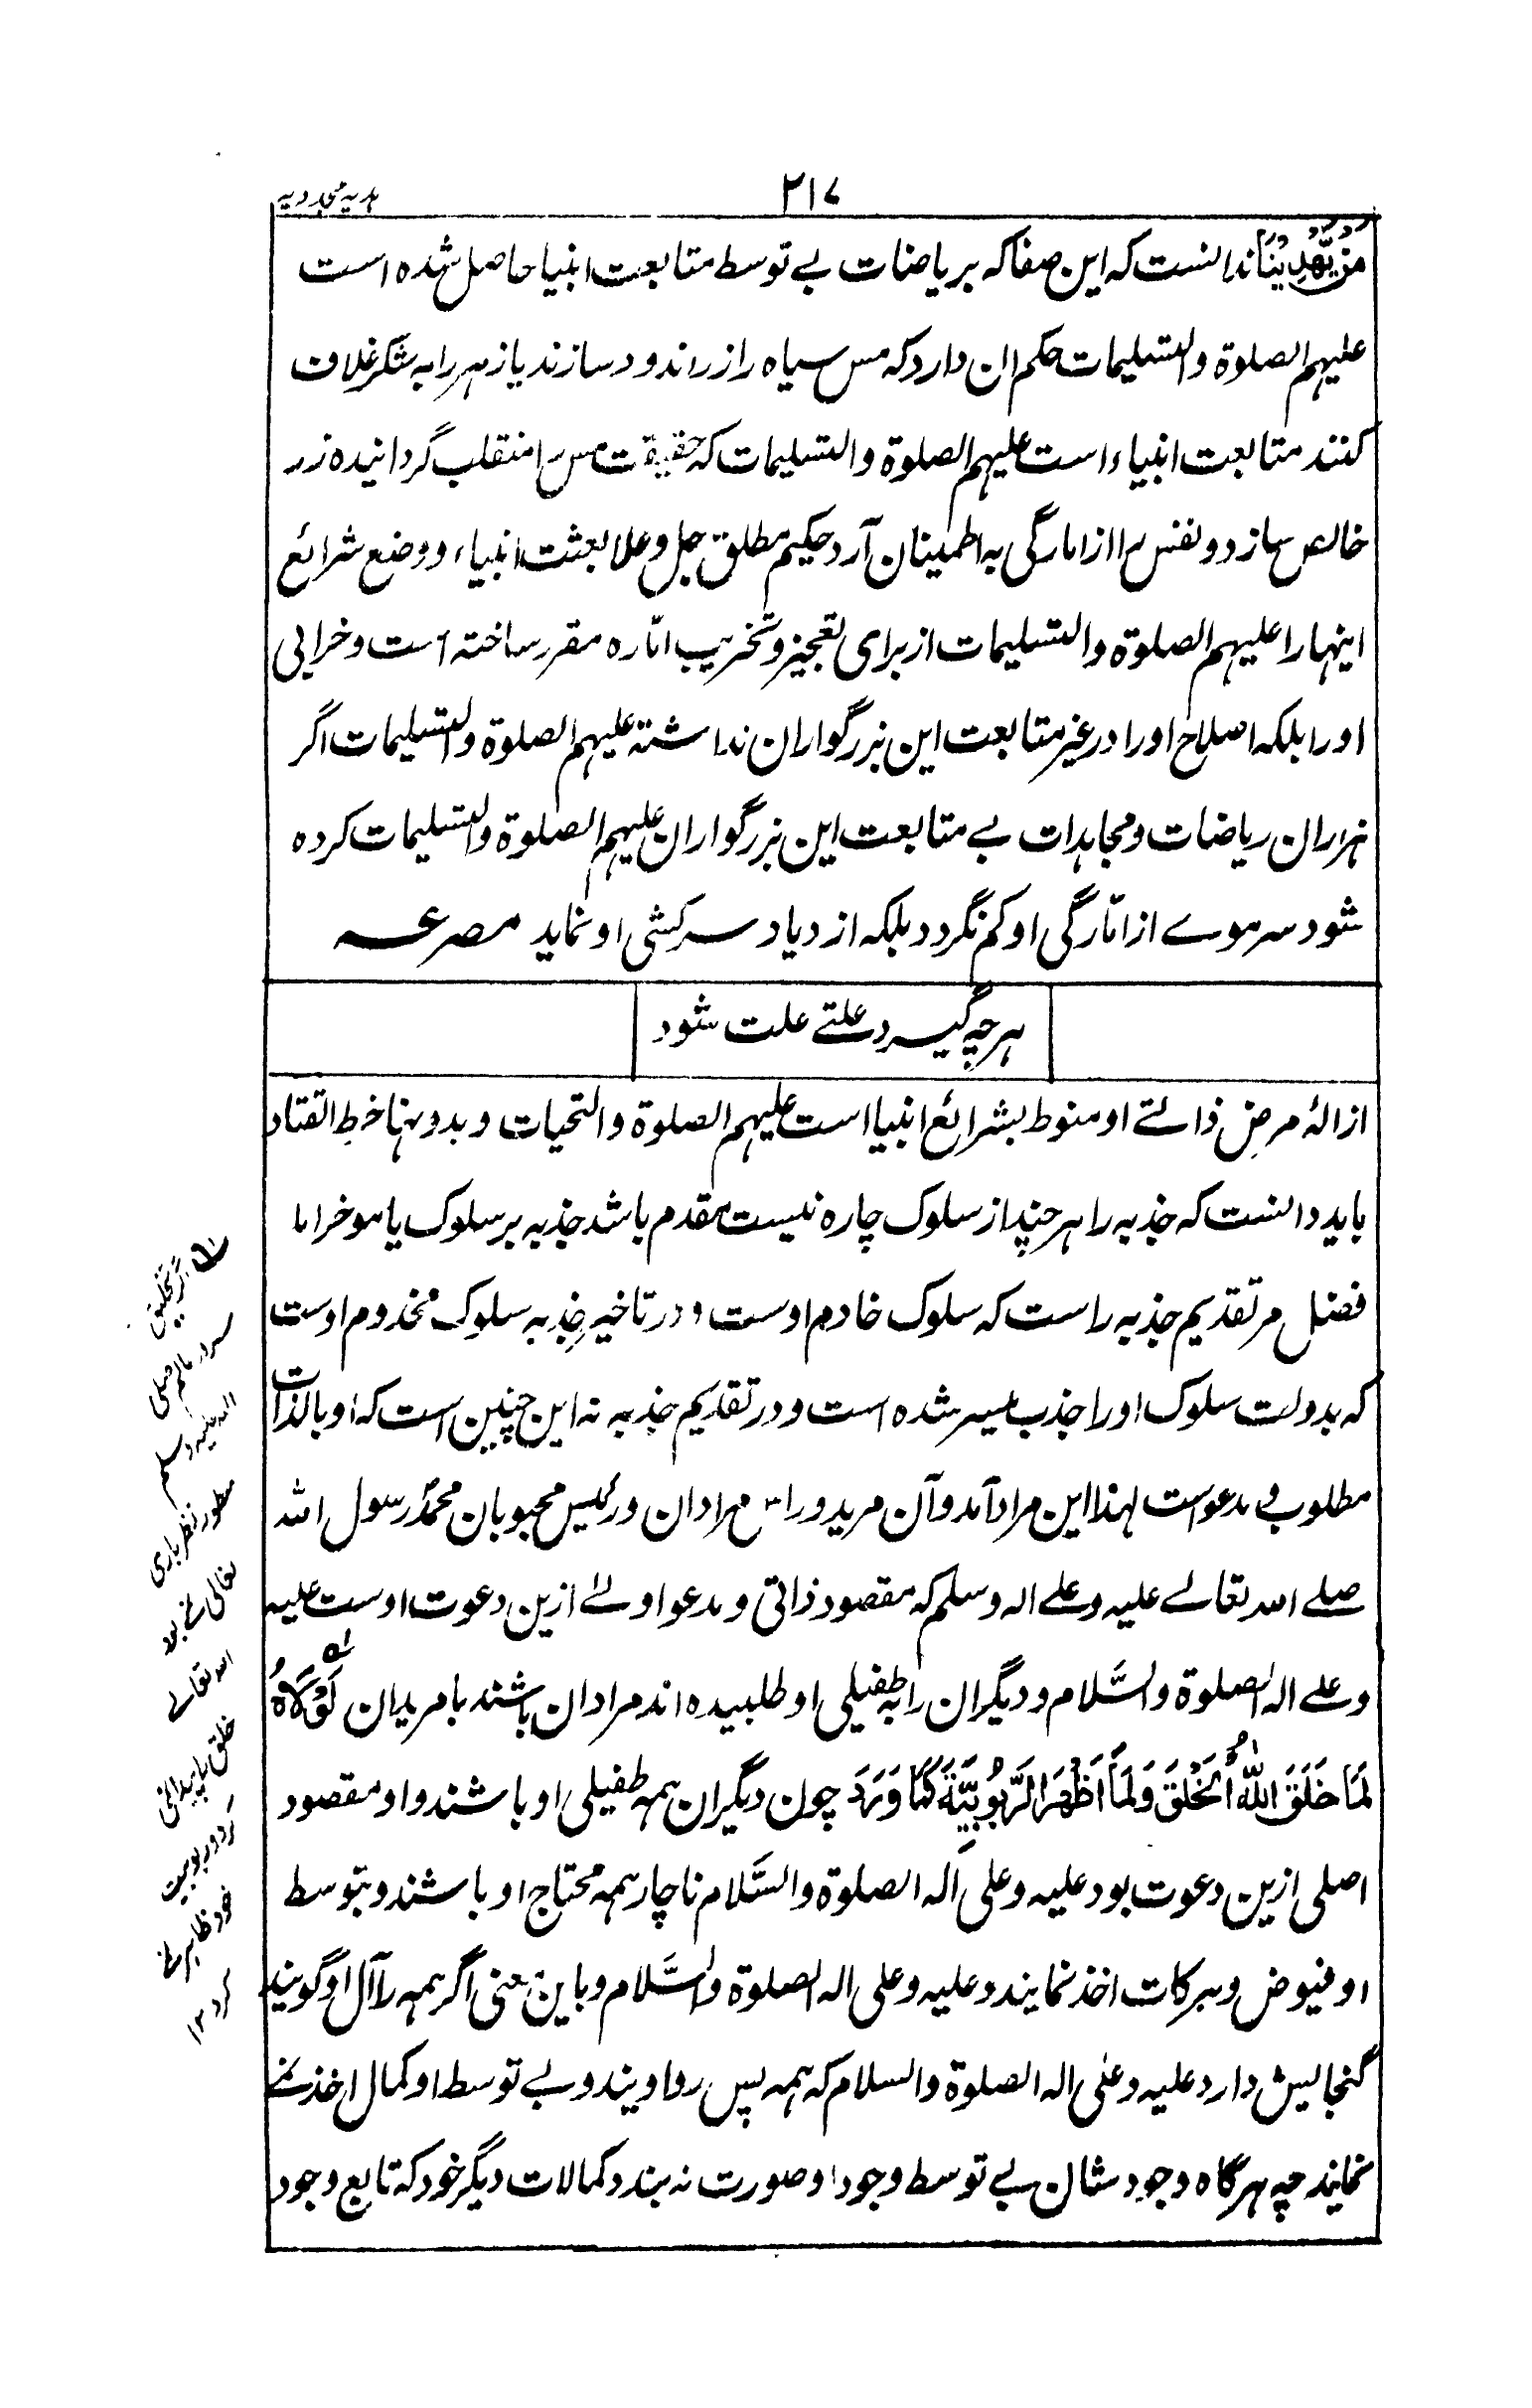 ہدیہ مجددیہ
۲۱۷
مَنْ يَّهْدِيْنَا ندانست که این صفا که بریاضات بے توسط متابعت انبیا حاصل شده است
علیہم الصلوة والتسلیمات حکم ان دارد که مس سیاه را زر اندود سازند یا زہر را بہ شکر غلاف
کنند متابعت انبیاء است علیہم الصلوة والتسلیمات که حقیقت مس را منقلب گردانیده زر
خالص سازد و نفس را از امارگی بہ اطمینان آرد حکیم مطلق جل وعلا بعثت انبیاء و وضع شرائع
اینہا را علیہم الصلوة والتسلیمات از برای تعجیز و تخریب امّاره مقرر ساختہ است و خرابی
او را بلکہ اصلاح او را در غیر متابعت این بزرگواران نداشتہ علیہم الصلوة والتسلیمات اگر
ہزاران ریاضات و مجاہدات بے متابعت این بزرگواران علیہم الصلوة والتسلیمات کرده
شود سر موے از امّارگی او کم نگردد بلکہ ازدیاد سرکشی او نماید مصرعہ
ہرچہ گیرد علتے علت شود
ازالۂ مرض ذاتے او منوط بشرائع انبیا است علیہم الصلوة والتحیات و بدونہا خرط القتاد
باید دانست که جذبہ را ہر چند از سلوک چاره نیست مقدم باشد جذبہ بر سلوک یا موخر اما
فضل مر تقدیم جذبہ راست که سلوک خادم اوست و در تاخیر جذبہ سلوک مخدوم اوست
که بدولت سلوک او را جذب میسر شده است و در تقدیم جذبہ نہ این چنین است که او بالذات
مطلوب و مدعواست لہذا این مراد آمد و آن مرید و راس مرادان و رئیس محبوبان محمدؐ رسول اللہ
صلے اللہ تعالے علیہ وعلے الہ وسلم که مقصود ذاتی و مدعو اولے ازین دعوت اوست علیہ
وعلے الہ الصلوة والسَّلام و دیگران را بہ طفیلی او طلبیده اند مرادان باشند یا مریدان لَوْلَاهُ
لَمَا خَلَقَ اللّٰهُ الْخَلْقَ وَلَمَا اَظْهَرَ الرَّبُوْبِيَّةَ كَمَا وَرَدَ چون دیگران ہمہ طفیلی او باشند و او مقصود
اصلی ازین دعوت بود علیہ وعلی آلہ الصلوة والسَّلام ناچار ہمہ محتاج او باشند و بتوسط
او فیوض و برکات اخذ نمایند و علیہ وعلی الہ الصلوة والسَّلام و باین معنی اگر ہمہ را آل او گویند
گنجایش دارد علیہ وعلی الہ الصلوة والسلام که ہمہ پس رو اویند و بے توسط او کمال اخذ نمے
نمایند چہ ہرگاه وجود شان بے توسط وجود او صورت نہ بندد کمالات دیگر خود کہ تابع وجود
اگر تخلیق
سرور عالم صلی
اللہ علیہ وسلم
منظور نظر باری
تعالی نمے بود
اللہ تعالے
خلق را پیدا نمے
کرد و ربوبیت
خود ظاہر نمے
کرد ۱۲